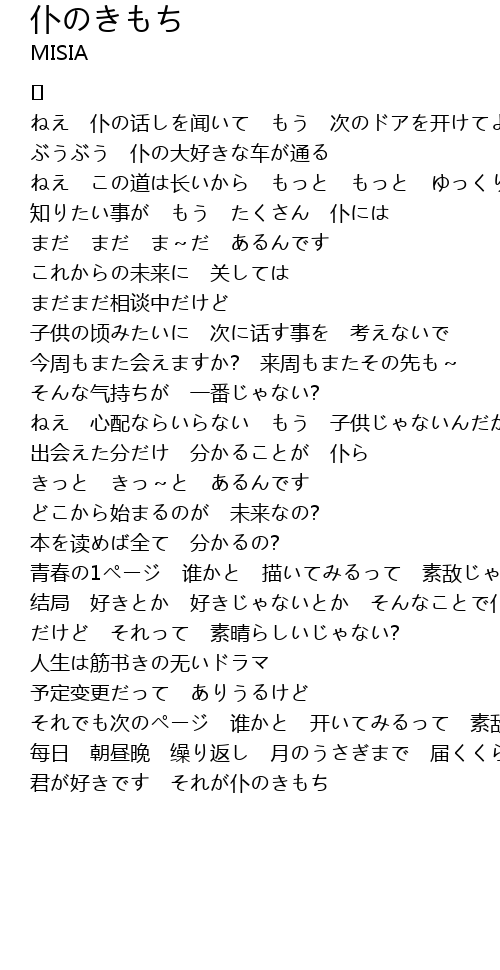 仆のきもち
MISIA
[]
ねえ　仆の话しを闻いて　もう　次のドアを开けてよ
ぶうぶう　仆の大好きな车が通る
ねえ　この道は长いから　もっと　もっと　ゆっくり
知りたい事が　もう　たくさん　仆には
まだ　まだ　ま～だ　あるんです
これからの未来に　关しては
まだまだ相谈中だけど
子供の顷みたいに　次に话す事を　考えないで
今周もまた会えますか?　来周もまたその先も～
そんな气持ちが　一番じゃない?
ねえ　心配ならいらない　もう　子供じゃないんだか
出会えた分だけ　分かることが　仆ら
きっと　きっ～と　あるんです
どこから始まるのが　未来なの?
本を读めば全て　分かるの?
青春の1ページ　谁かと　描いてみるって　素敌じゃ
结局　好きとか　好きじゃないとか　そんなことで仆
だけど　それって　素晴らしいじゃない?
人生は筋书きの无いドラマ
予定变更だって　ありうるけど
それでも次のページ　谁かと　开いてみるって　素敌
每日　朝昼晚　缲り返し　月のうさぎまで　届くくら
君が好きです　それが仆のきもち